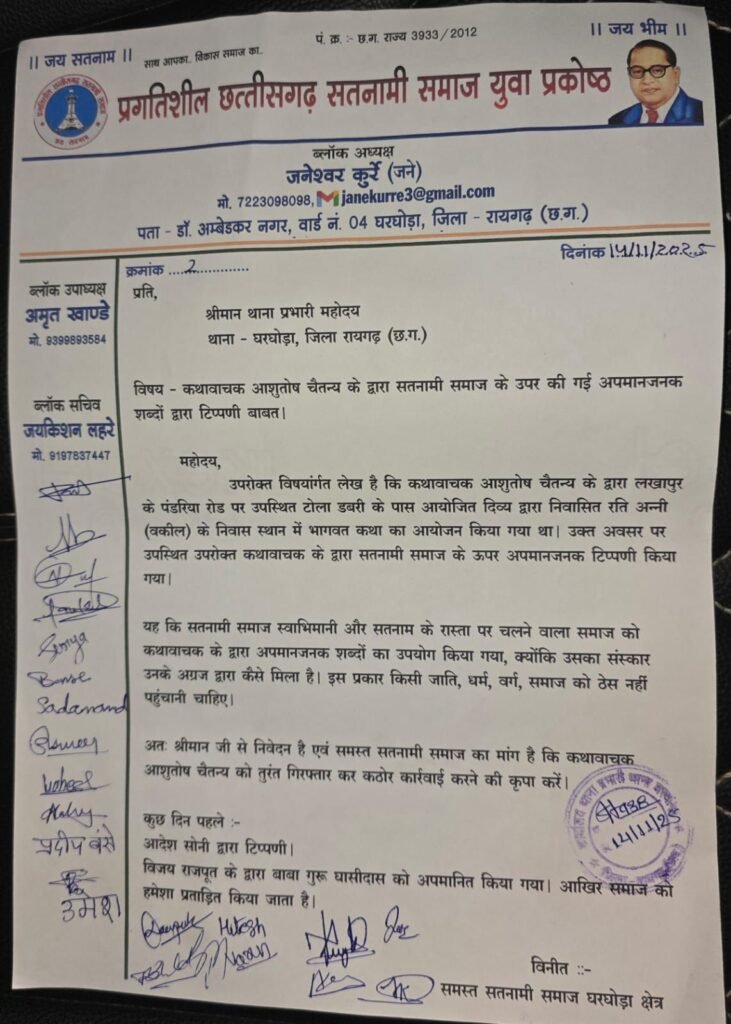 पं. क्र. :- छ.ग. राज्य 3933 / 2012
|| जय सतनाम ||
साथ आपका.. विकास समाज का..
|| जय भीम ||
प्रगतिशील छत्तीसगढ़ सतनामी समाज युवा प्रकोष्ठ
ब्लॉक अध्यक्ष
जनेश्वर कुर्रे (जने)
मो. 7223098098, janekurre3@gmail.com
पता - डॉ. अम्बेडकर नगर, वार्ड नं. 04 घरघोड़ा, जिला - रायगढ़ (छ.ग.)
क्रमांक .....2.............
दिनांक 14/11/2025
ब्लॉक उपाध्यक्ष
अमृत खाण्डे
मो. 9399893584
ब्लॉक सचिव
जयकिशन लहरे
मो. 9197837447
Sadanand
प्रदीप बंसे
उमेश
प्रति,
श्रीमान थाना प्रभारी महोदय
थाना - घरघोड़ा, जिला रायगढ़ (छ.ग.)
विषय - कथावाचक आशुतोष चैतन्य के द्वारा सतनामी समाज के उपर की गई अपमानजनक
शब्दों द्वारा टिप्पणी बाबत।
महोदय,
उपरोक्त विषयांर्गत लेख है कि कथावाचक आशुतोष चैतन्य के द्वारा लखापुर
के पंडरिया रोड पर उपस्थित टोला डबरी के पास आयोजित दिव्य द्वारा निवासित रति अन्नी
(वकील) के निवास स्थान में भागवत कथा का आयोजन किया गया था। उक्त अवसर पर
उपस्थित उपरोक्त कथावाचक के द्वारा सतनामी समाज के ऊपर अपमानजनक टिप्पणी किया
गया।
यह कि सतनामी समाज स्वाभिमानी और सतनाम के रास्ता पर चलने वाला समाज को
कथावाचक के द्वारा अपमानजनक शब्दों का उपयोग किया गया, क्योंकि उसका संस्कार
उनके अग्रज द्वारा कैसे मिला है। इस प्रकार किसी जाति, धर्म, वर्ग, समाज को ठेस नहीं
पहुंचानी चाहिए।
अतः श्रीमान जी से निवेदन है एवं समस्त सतनामी समाज का मांग है कि कथावाचक
आशुतोष चैतन्य को तुरंत गिरफ्तार कर कठोर कार्रवाई करने की कृपा करें।
14/11/25
कुछ दिन पहले :-
आदेश सोनी द्वारा टिप्पणी।
विजय राजपूत के द्वारा बाबा गुरू घासीदास को अपमानित किया गया। आखिर समाज को
हमेशा प्रताड़ित किया जाता है।
Hitesh
विनीत ::-
समस्त सतनामी समाज घरघोड़ा क्षेत्र